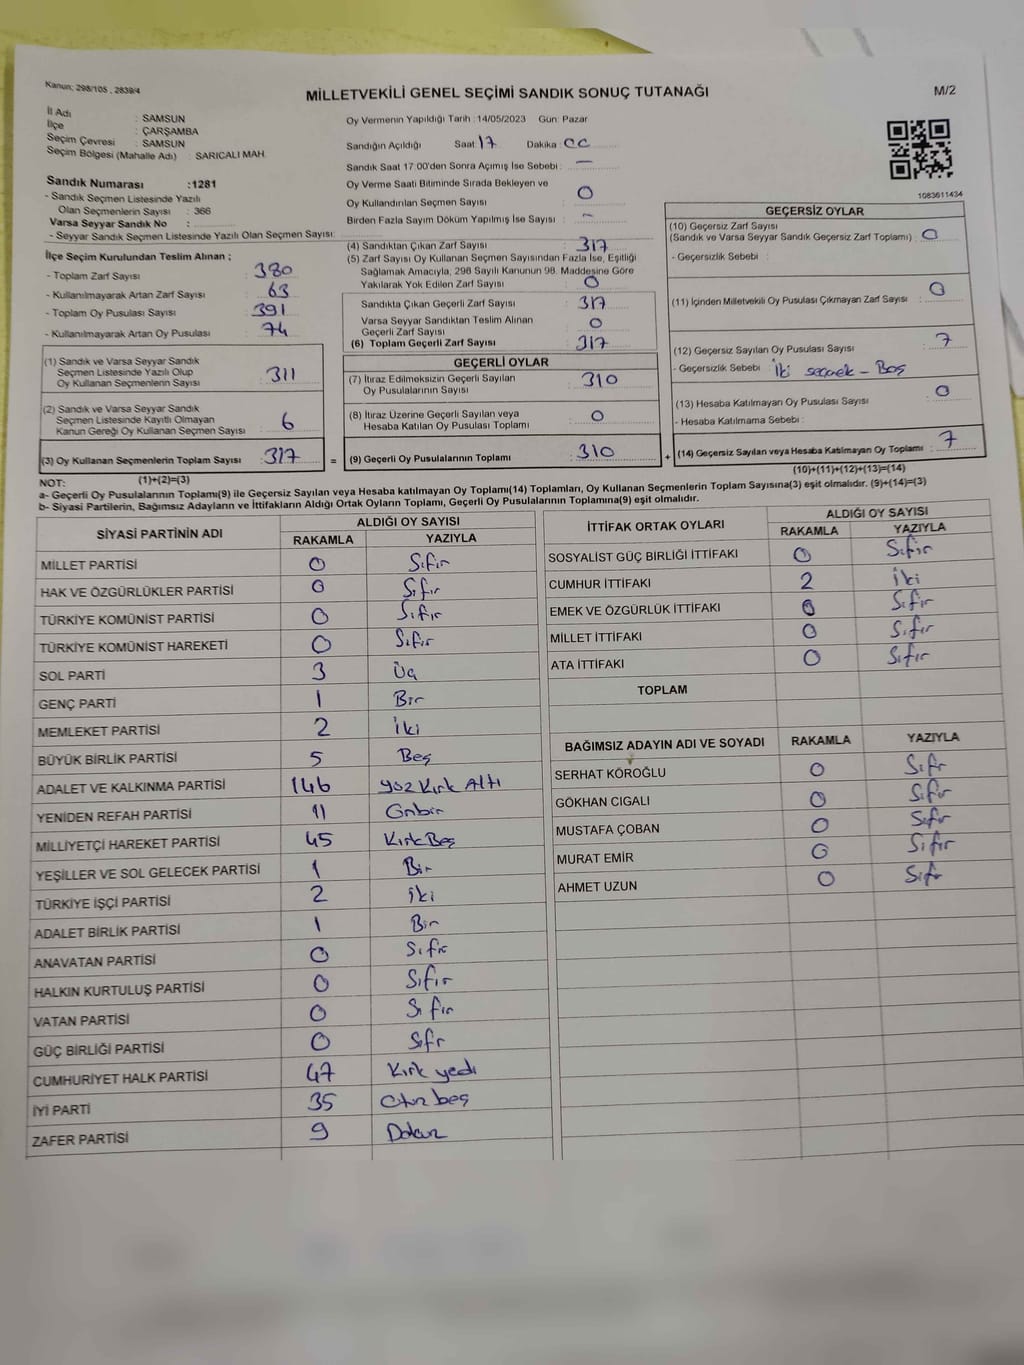 Kanun; 298/105 , 2839/4
MİLLETVEKİLİ GENEL SEÇİMİ SANDIK SONUÇ TUTANAĞI
M/2
İl Adı : SAMSUN
İlçe : ÇARŞAMBA
Seçim Çevresi : SAMSUN
Seçim Bölgesi (Mahalle Adı) : SARICALI MAH.
Sandık Numarası :1281
- Sandık Seçmen Listesinde Yazılı
Olan Seçmenlerin Sayısı : 366
Varsa Seyyar Sandık No :
- Seyyar Sandık Seçmen Listesinde Yazılı Olan Seçmen Sayısı:
İlçe Seçim Kurulundan Teslim Alınan ;
- Toplam Zarf Sayısı : 380
- Kullanılmayarak Artan Zarf Sayısı : 63
- Toplam Oy Pusulası Sayısı : 391
- Kullanılmayarak Artan Oy Pusulası : 74
(1) Sandık ve Varsa Seyyar Sandık
Seçmen Listesinde Yazılı Olup
Oy Kullanan Seçmenlerin Sayısı : 311
(2) Sandık ve Varsa Seyyar Sandık
Seçmen Listesinde Kayıtlı Olmayan
Kanun Gereği Oy Kullanan Seçmen Sayısı : 6
(3) Oy Kullanan Seçmenlerin Toplam Sayısı : 317 =
Oy Vermenin Yapıldığı Tarih : 14/05/2023 Gün: Pazar
Sandığın Açıldığı Saat: 17 Dakika: 00
Sandık Saat 17:00'den Sonra Açımış İse Sebebi : —
Oy Verme Saati Bitiminde Sırada Bekleyen ve
Oy Kullandırılan Seçmen Sayısı : 0
Birden Fazla Sayım Döküm Yapılmış İse Sayısı : -
(4) Sandıktan Çıkan Zarf Sayısı : 317
(5) Zarf Sayısı Oy Kullanan Seçmen Sayısından Fazla İse, Eşitliği
Sağlamak Amacıyla, 298 Sayılı Kanunun 98. Maddesine Göre
Yakılarak Yok Edilen Zarf Sayısı : 0
Sandıkta Çıkan Geçerli Zarf Sayısı : 317
Varsa Seyyar Sandıktan Teslim Alınan
Geçerli Zarf Sayısı : 0
(6) Toplam Geçerli Zarf Sayısı : 317
GEÇERLİ OYLAR
(7) İtiraz Edilmeksizin Geçerli Sayılan
Oy Pusulalarının Sayısı : 310
(8) İtiraz Üzerine Geçerli Sayılan veya
Hesaba Katılan Oy Pusulası Toplamı : 0
(9) Geçerli Oy Pusulalarının Toplamı : 310 +
1083611434
GEÇERSİZ OYLAR
(10) Geçersiz Zarf Sayısı
(Sandık ve Varsa Seyyar Sandık Geçersiz Zarf Toplamı) : 0
- Geçersizlik Sebebi :
(11) İçinden Milletvekili Oy Pusulası Çıkmayan Zarf Sayısı : 0
(12) Geçersiz Sayılan Oy Pusulası Sayısı : 7
- Geçersizlik Sebebi : İki seçmek - Boş
(13) Hesaba Katılmayan Oy Pusulası Sayısı : 0
- Hesaba Katılmama Sebebi :
(14) Geçersiz Sayılan veya Hesaba Katılmayan Oy Toplamı : 7
NOT: (1)+(2)=(3) (10)+(11)+(12)+(13)=(14)
a- Geçerli Oy Pusulalarının Toplamı(9) ile Geçersiz Sayılan veya Hesaba katılmayan Oy Toplamı(14) Toplamları, Oy Kullanan Seçmenlerin Toplam Sayısına(3) eşit olmalıdır. (9)+(14)=(3)
b- Siyasi Partilerin, Bağımsız Adayların ve İttifakların Aldığı Oy Ortak Oyların Toplamı, Geçerli Oy Pusulalarının Toplamına(9) eşit olmalıdır.
SİYASİ PARTİNİN ADI ALDIĞI OY SAYISI
RAKAMLA YAZIYLA
MİLLET PARTİSİ 0 Sıfır
HAK VE ÖZGÜRLÜKLER PARTİSİ 0 Sıfır
TÜRKİYE KOMÜNİST PARTİSİ 0 Sıfır
TÜRKİYE KOMÜNİST HAREKETİ 0 Sıfır
SOL PARTİ 3 Üç
GENÇ PARTİ 1 Bir
MEMLEKET PARTİSİ 2 İki
BÜYÜK BİRLİK PARTİSİ 5 Beş
ADALET VE KALKINMA PARTİSİ 146 yüz Kırk Altı
YENİDEN REFAH PARTİSİ 11 Onbir
MİLLİYETÇİ HAREKET PARTİSİ 45 Kırk Beş
YEŞİLLER VE SOL GELECEK PARTİSİ 1 Bir
TÜRKİYE İŞÇİ PARTİSİ 2 iki
ADALET BİRLİK PARTİSİ 1 Bir
ANAVATAN PARTİSİ 0 Sıfır
HALKIN KURTULUŞ PARTİSİ 0 Sıfır
VATAN PARTİSİ 0 Sıfır
GÜÇ BİRLİĞİ PARTİSİ 0 Sıfr
CUMHURİYET HALK PARTİSİ 47 Kırk yedi
İYİ PARTİ 35 Otuz beş
ZAFER PARTİSİ 9 Dokuz
İTTİFAK ORTAK OYLARI ALDIĞI OY SAYISI
RAKAMLA YAZIYLA
SOSYALİST GÜÇ BİRLİĞİ İTTİFAKI 0 Sıfır
CUMHUR İTTİFAKI 2 İki
EMEK VE ÖZGÜRLÜK İTTİFAKI 0 Sıfır
MİLLET İTTİFAKI 0 Sıfır
ATA İTTİFAKI 0 Sıfır
TOPLAM
BAĞIMSIZ ADAYIN ADI VE SOYADI RAKAMLA YAZIYLA
SERHAT KÖROĞLU 0 Sıfr
GÖKHAN CIGALI 0 Sıfır
MUSTAFA ÇOBAN 0 Sıfır
MURAT EMİR 0 Sıfır
AHMET UZUN 0 Sıfr